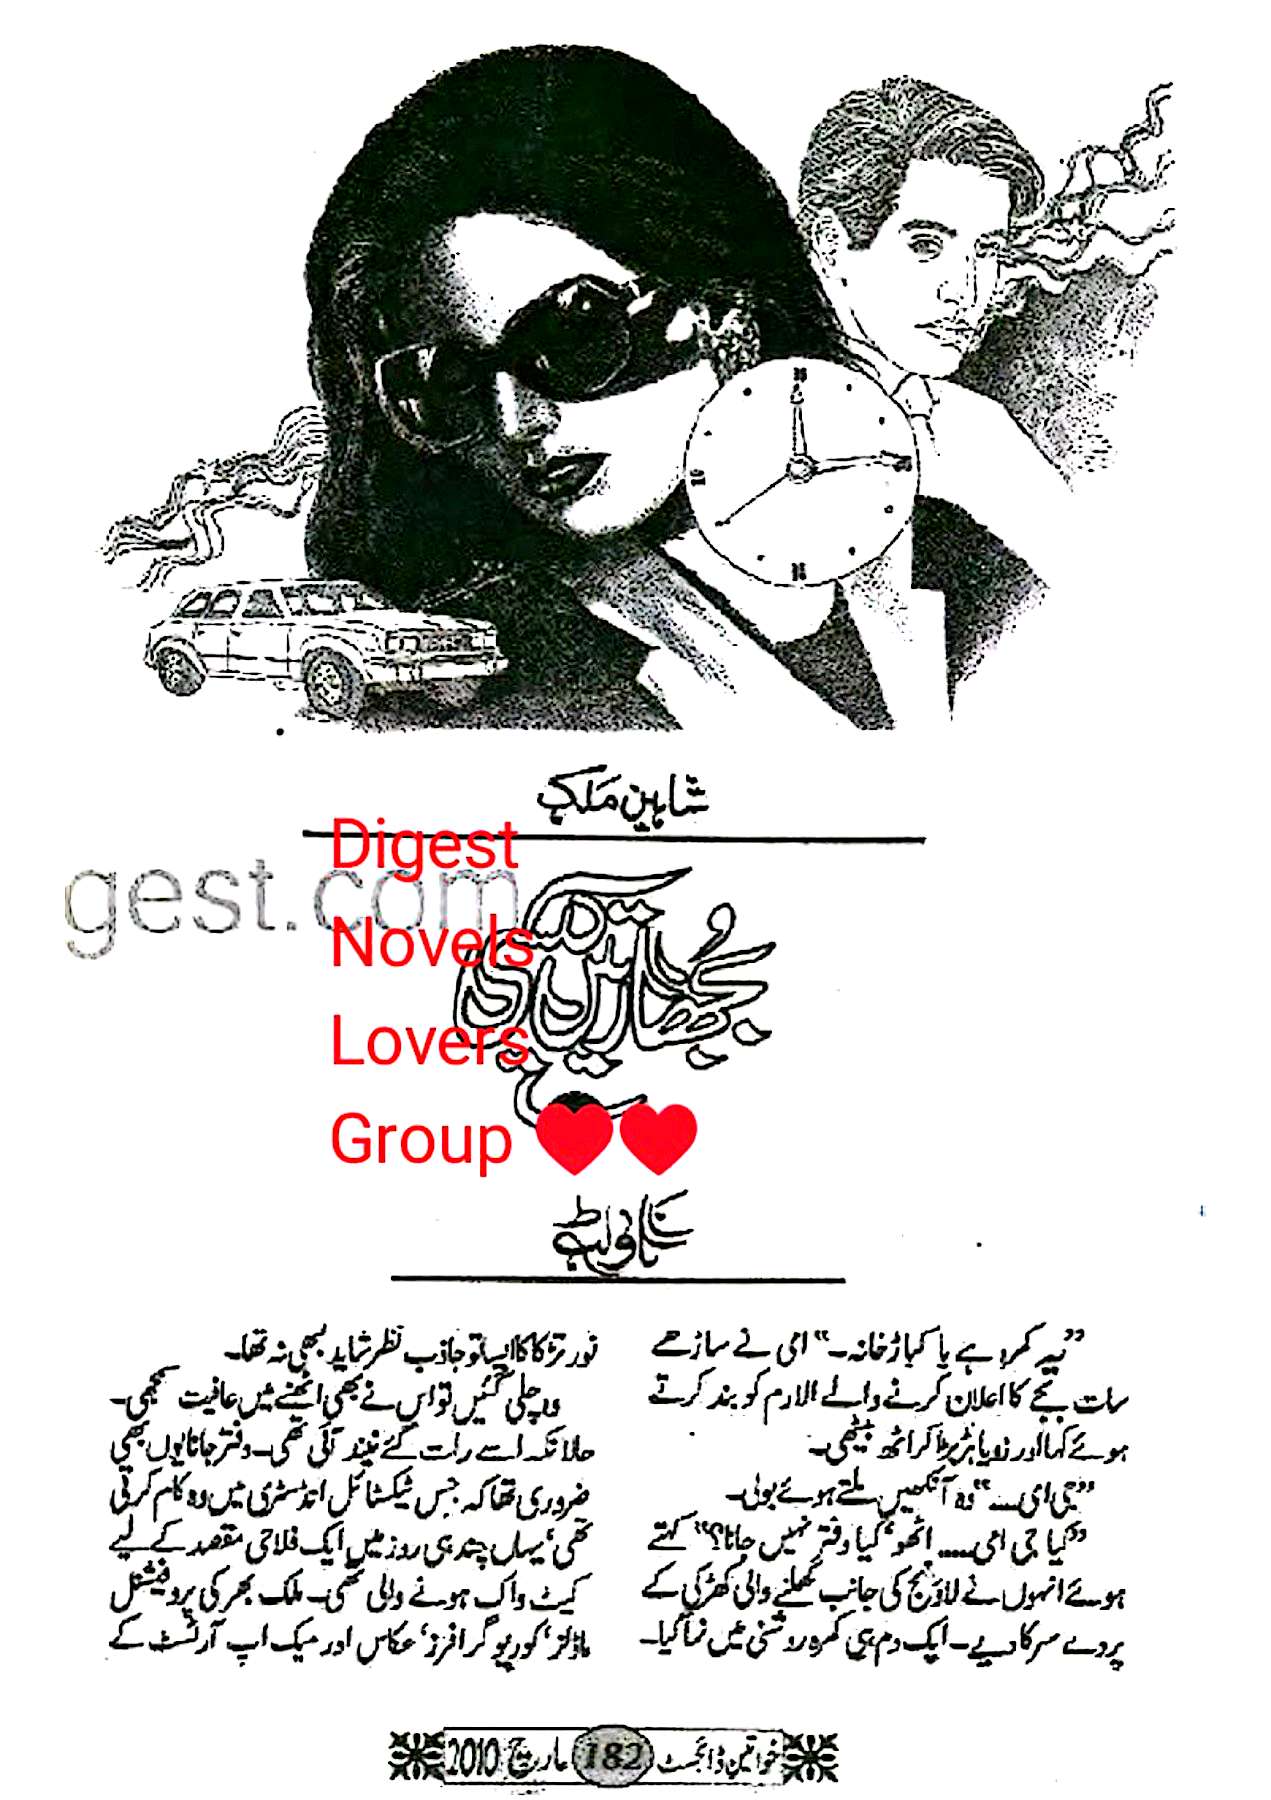 شاہین ملک
gest.com
Digest
Novels
Lovers
Group
ناولٹ
”یہ کمرہ ہے یا کباڑ خانہ۔“ امی نے ساڑھے
سات بجے کا اعلان کرنے والے الارم کو بند کرتے
ہوئے کہا اور زویا ہڑبڑا کر اٹھ بیٹھی۔
”جی امی....“ وہ آنکھیں ملتے ہوئے بولی۔
”کیا جی امی.... اٹھو‘ کیا دفتر نہیں جانا؟“ کہتے
ہوئے انہوں نے لاؤنج کی جانب کھلنے والی کھڑکی کے
پردے سرکا دیے۔ ایک دم ہی کمرہ روشنی میں نہا گیا۔
نور تڑکا کا ایسا تو جاذب نظر شاید کبھی نہ تھا۔
وہ چلی گئیں تو اس نے بھی اٹھنے میں عافیت سمجھی۔
حالانکہ اسے رات گئے نیند آئی تھی۔ دفتر جانا یوں بھی
ضروری تھا کہ جس ٹیکسٹائل انڈسٹری میں وہ کام کرتی
تھی‘ یہاں چند ہی روز میں ایک فلاحی مقصد کے لیے
کیٹ واک ہونے والی تھی۔ ملک بھر کی پروفیشنل
ماڈلز‘ کوریو گرافرز‘ عکاس اور میک اپ آرٹسٹ کے
خواتین ڈائجسٹ 182 مارچ 2010